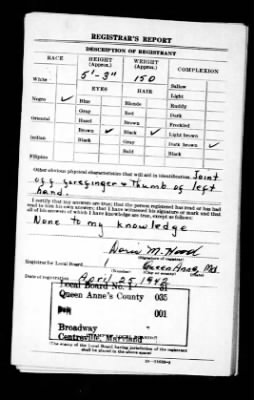 REGISTRAR'S REPORT
DESCRIPTION OF REGISTRANT
RACE HEIGHT (Approx.) WEIGHT (Approx.) COMPLEXION
White 5'-3" 150 Sallow
EYES HAIR Light
Negro ✓ Blue Blonde Ruddy
Gray Red Dark
Oriental Hazel Brown Freckled
Brown ✓ Black ✓ Light brown
Indian Black Gray Dark brown ✓
Bald Black
Filipino
Other obvious physical characteristics that will aid in identification Joint
off forefinger & Thumb of left
hand.
I certify that my answers are true; that the person registered has read or has had
read to him his own answers; that I have witnessed his signature or mark and that
all of his answers of which I have knowledge are true, except as follows:
None to my knowledge
M. Hood
Registrar for Local Board 1 Queen Anne, Md.
(Number) (City or county) (State)
Date of registration April 25, 1942
Local Board No. 1
Queen Anne's County 035
001
Broadway
Centreville, Maryland
(The stamp of the Local Board having jurisdiction of the registrant
shall be placed in the above space)